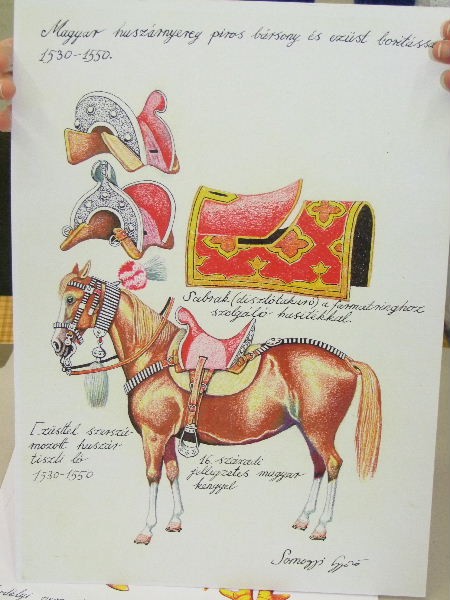 Magyar huszárnyereg piros bársony és ezüst borítással
1530-1550.
Sabrak (díszlótakaró) a farmatringhoz
szolgáló hasítékkal.
Ezüsttel szerszá-
mozott huszár-
tiszti ló
1530-1550
16. századi
jellegzetes magyar
kengyel
Somogyi Győző